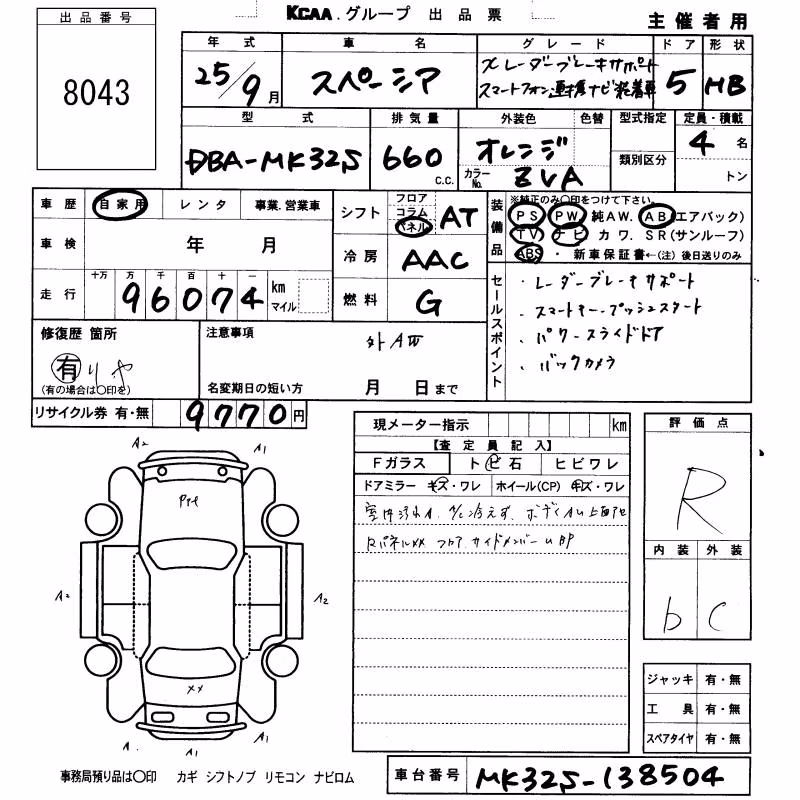 出品番号
8043
KCAA.グループ 出品票
主催者用
年式 車名 グレード ドア 形状
25/9月 スペーシア
Xレーダーブレーキサポート
スマートフォン連携ナビ装着車
5 HB
型式 排気量 外装色 色替 型式指定 定員・積載
DBA-MK32S 660 c.c. オレンジ 4名
カラーNo. ZVA 類別区分 トン
車歴 自家用 レンタ 事業.営業車
シフト フロア コラム パネル AT
装備品 ※純正のみ○印をつけて下さい。
PS PW 純AW. AB エアバック)
TV ナビ カワ. SR(サンルーフ)
ABS ・ 新車保証書←(注)後日送りのみ
車検 年 月
冷房 AAC
走行 十万 万 千 百 十 一
96074 km マイル
燃料 G
セールスポイント
・レーダーブレーキサポート
・スマートキー・プッシュスタート
・パワースライドドア
・バックカメラ
修復歴 箇所 注意事項
有 外AW
(有の場合は○印を) 名変期日の短い方 月 日まで
リサイクル券 有・無 9770円
現メーター指示 km
【査定員記入】
Fガラス トビ石 ヒビワレ
ドアミラー キズ・ワレ ホイール(CP) キズ・ワレ
室内汚れA. A/C冷えず. ボディAU上面
Rパネルxx フロア.サイドメンバーU
評価点
R
内装 外装
b C
A2 A1
A2 A2
XX
A1 A1
ジャッキ 有・無
工具 有・無
スペアタイヤ 有・無
事務局預り品は○印 カギ シフトノブ リモコン ナビロム
車台番号 MK32S-138504